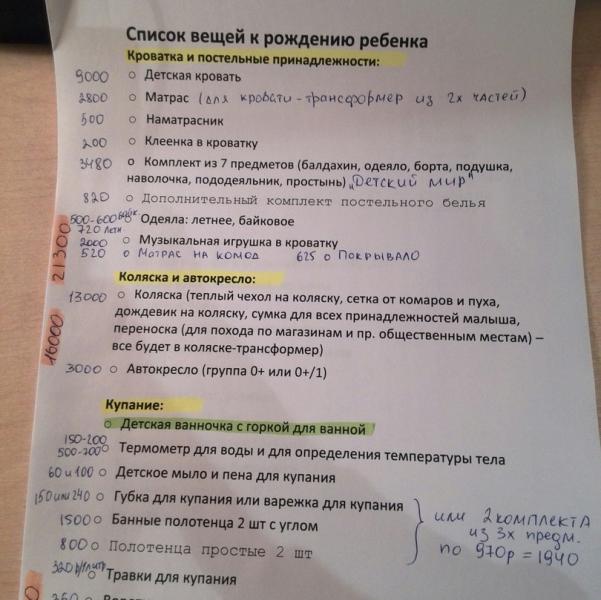 Список вещей к рождению ребенка
Кроватка и постельные принадлежности:
9000 ○ Детская кровать
2800 ○ Матрас (для кровати-трансформер из 2х частей)
500 ○ Наматрасник
200 ○ Клеенка в кроватку
3480 ○ Комплект из 7 предметов (балдахин, одеяло, борта, подушка,
наволочка, пододеяльник, простынь) "Детский мир"
820 ○ Дополнительный комплект постельного белья
500-600 байк. ○ Одеяла: летнее, байковое
720 летн
2000 ○ Музыкальная игрушка в кроватку
520 ○ Матрас на комод 625 ○ Покрывало
21300
Коляска и автокресло:
13000 ○ Коляска (теплый чехол на коляску, сетка от комаров и пуха,
дождевик на коляску, сумка для всех принадлежностей малыша,
переноска (для похода по магазинам и пр. общественным местам) –
все будет в коляске-трансформер)
16000
3000 ○ Автокресло (группа 0+ или 0+/1)
Купание:
○ Детская ванночка с горкой для ванной
150-200
500-700 ○ Термометр для воды и для определения температуры тела
60 и 100 ○ Детское мыло и пена для купания
150 или 240 ○ Губка для купания или варежка для купания
1500 ○ Банные полотенца 2 шт с углом
800 ○ Полотенца простые 2 шт
или 2 комплекта
из 3х предм.
по 970р = 1940
320р/литр ○ Травки для купания